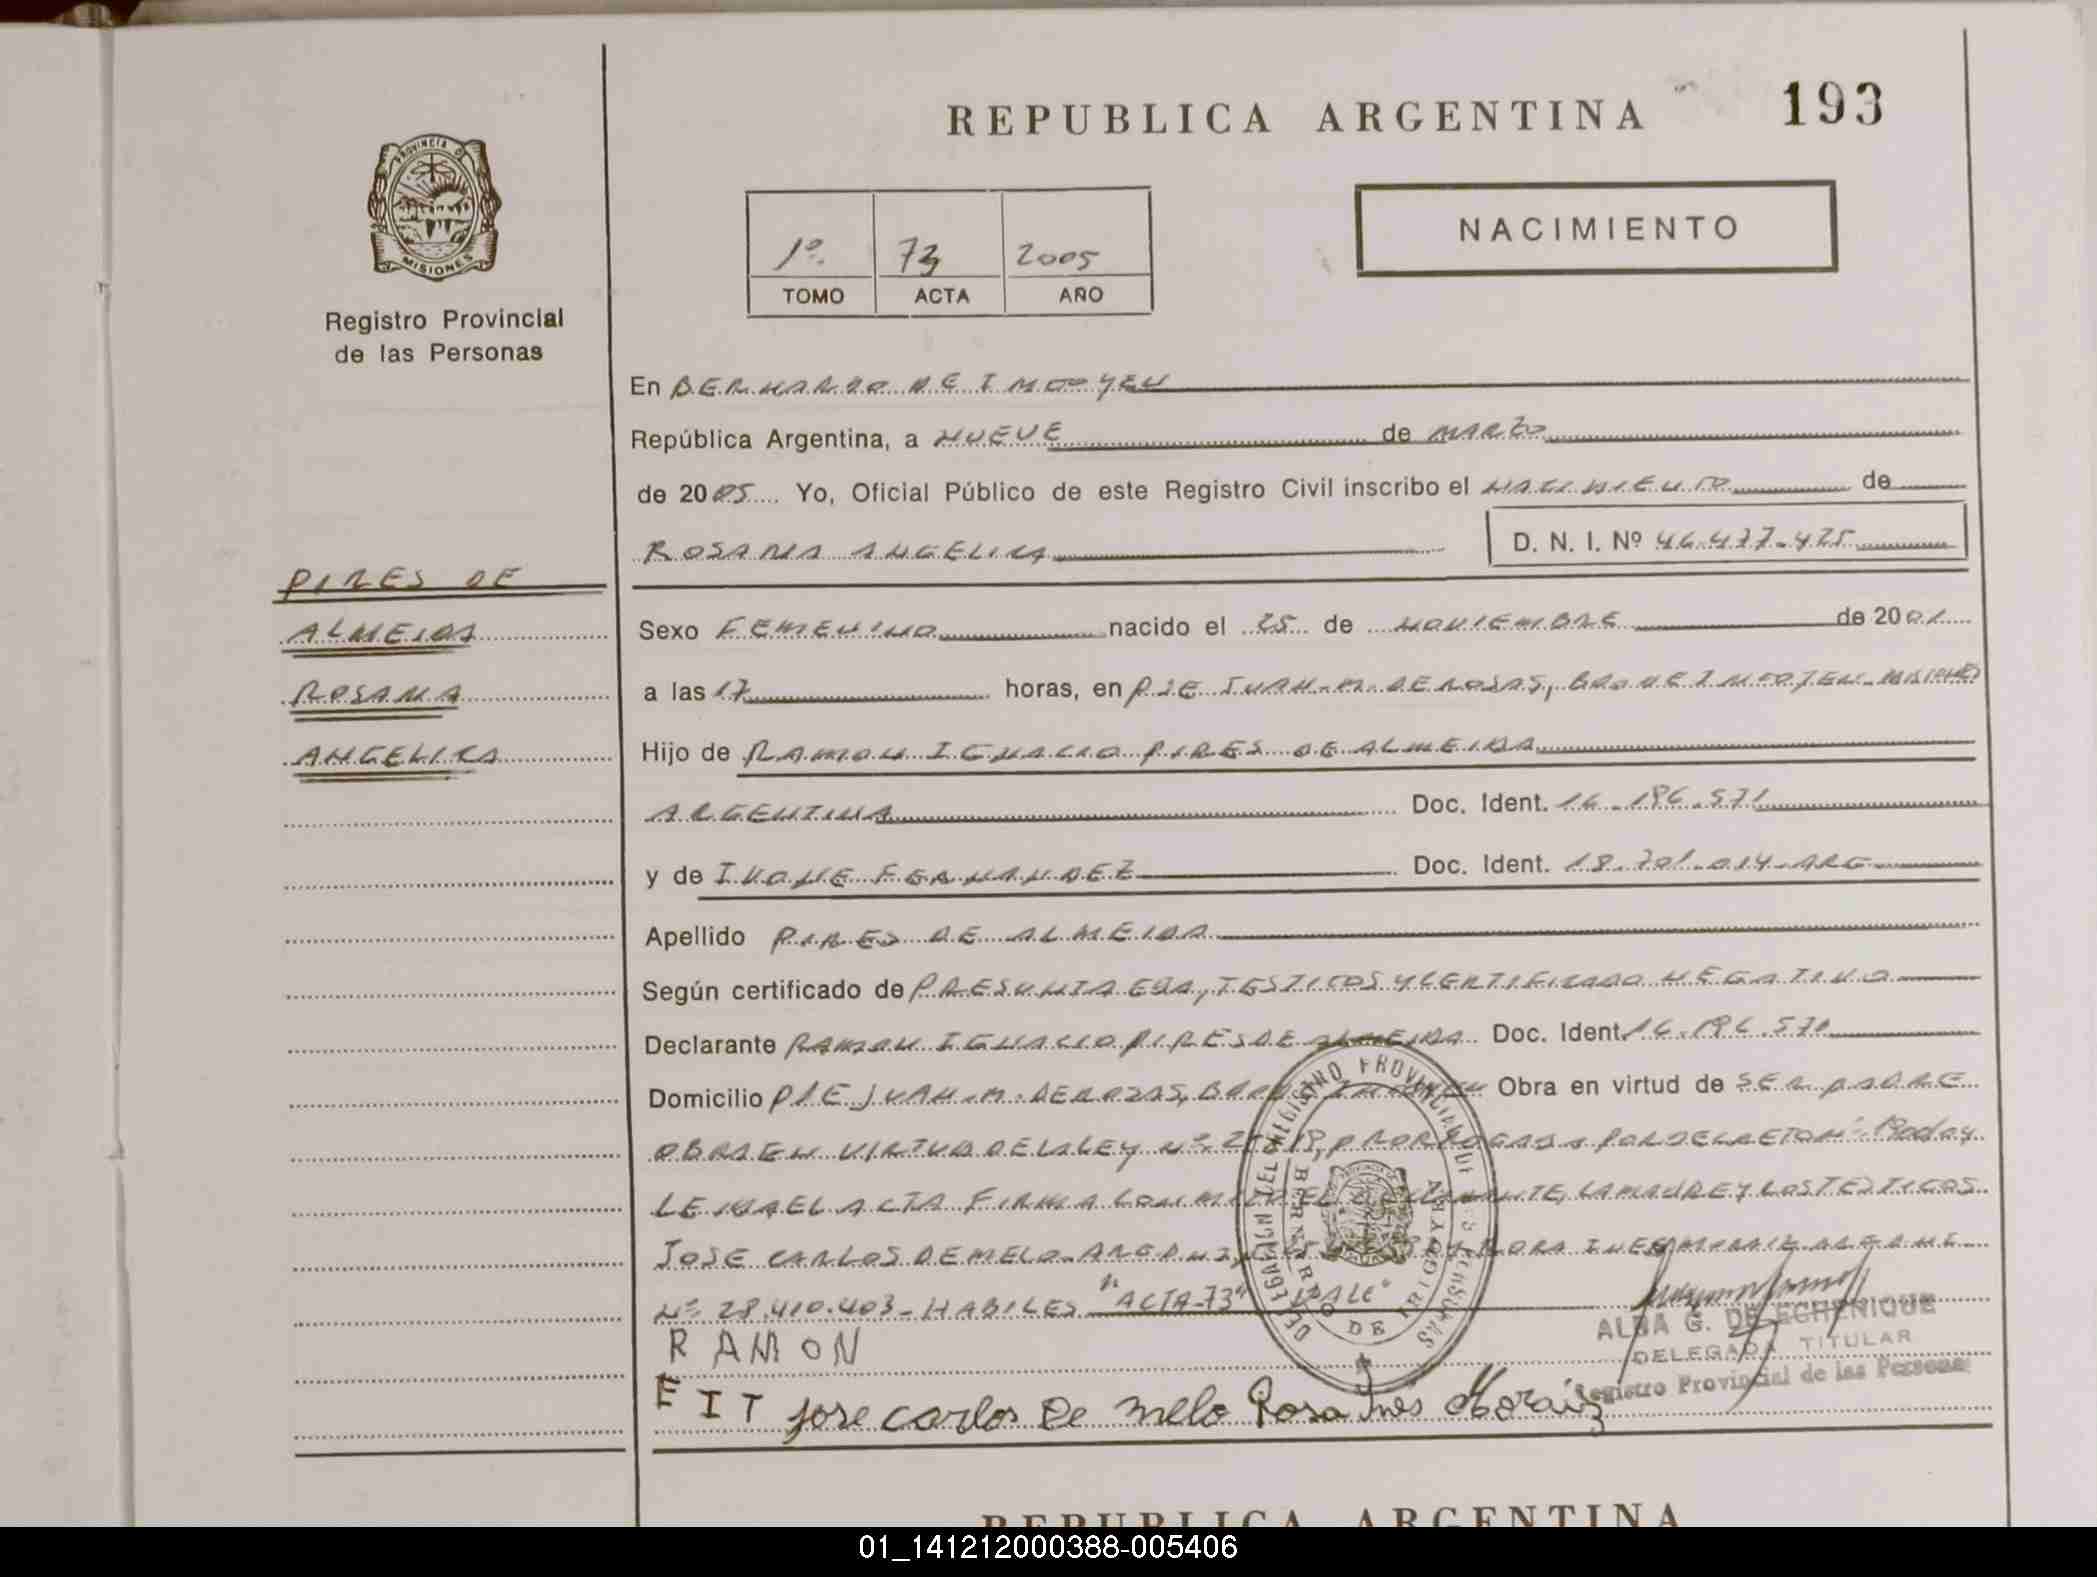 REPUBLICA ARGENTINA 193
PROVINCIA DE
MISIONES
Registro Provincial
de las Personas
1º. 73 2005
TOMO ACTA AÑO
NACIMIENTO
En BERNARDO DE IRIGOYEN
República Argentina, a NUEVE de MARZO
de 2005 Yo, Oficial Público de este Registro Civil inscribo el NACIMIENTO de
ROSANA ANGELICA D. N. I. Nº 46.477.425
PIRES DE
ALMEIDA
ROSANA
ANGELICA
Sexo FEMENINO nacido el 25 de NOVIEMBRE de 2001
a las 17 horas, en PJE JUAN.M.DE ROSAS, BRDO DE IRIGOYEN-MISIONES
Hijo de RAMON IGNACIO PIRES DE ALMEIDA
ARGENTINA Doc. Ident. 16.196.571
y de IVONE FERNANDEZ Doc. Ident. 18.701.014-ARG
Apellido PIRES DE ALMEIDA
Según certificado de PRESUNTA EDAD, TESTIGOS Y CERTIFICADO NEGATIVO
Declarante RAMON IGNACIO PIRES DE ALMEIDA Doc. Ident. 16.196.571
Domicilio PJE JUAN.M.DE ROSAS, BRDO IRIGOYEN Obra en virtud de SER PADRE
OBRA EN VIRTUD DE LA LEY Nº PRORROGADA POR DECRETO Nº
LEIDA EL ACTA FIRMA CONMIGO EL DECLARANTE, LA MADRE Y LOS TESTIGOS
JOSE CARLOS DE MELO-ARG D.N.I. ROSA INES MORAIZ ARG DNI
Nº 28.410.403-HABILES "ACTA-73" VALE"
RAMON
DELEGACION DEL REGISTRO PROVINCIAL DE LAS PERSONAS
BERNARDO DE IRIGOYEN
ALBA G. DE ECHENIQUE
DELEGADA TITULAR
Registro Provincial de las Personas
EIT Jose carlos De melo Rosa Inés Moraiz
REPUBLICA ARGENTINA
01_141212000388-005406